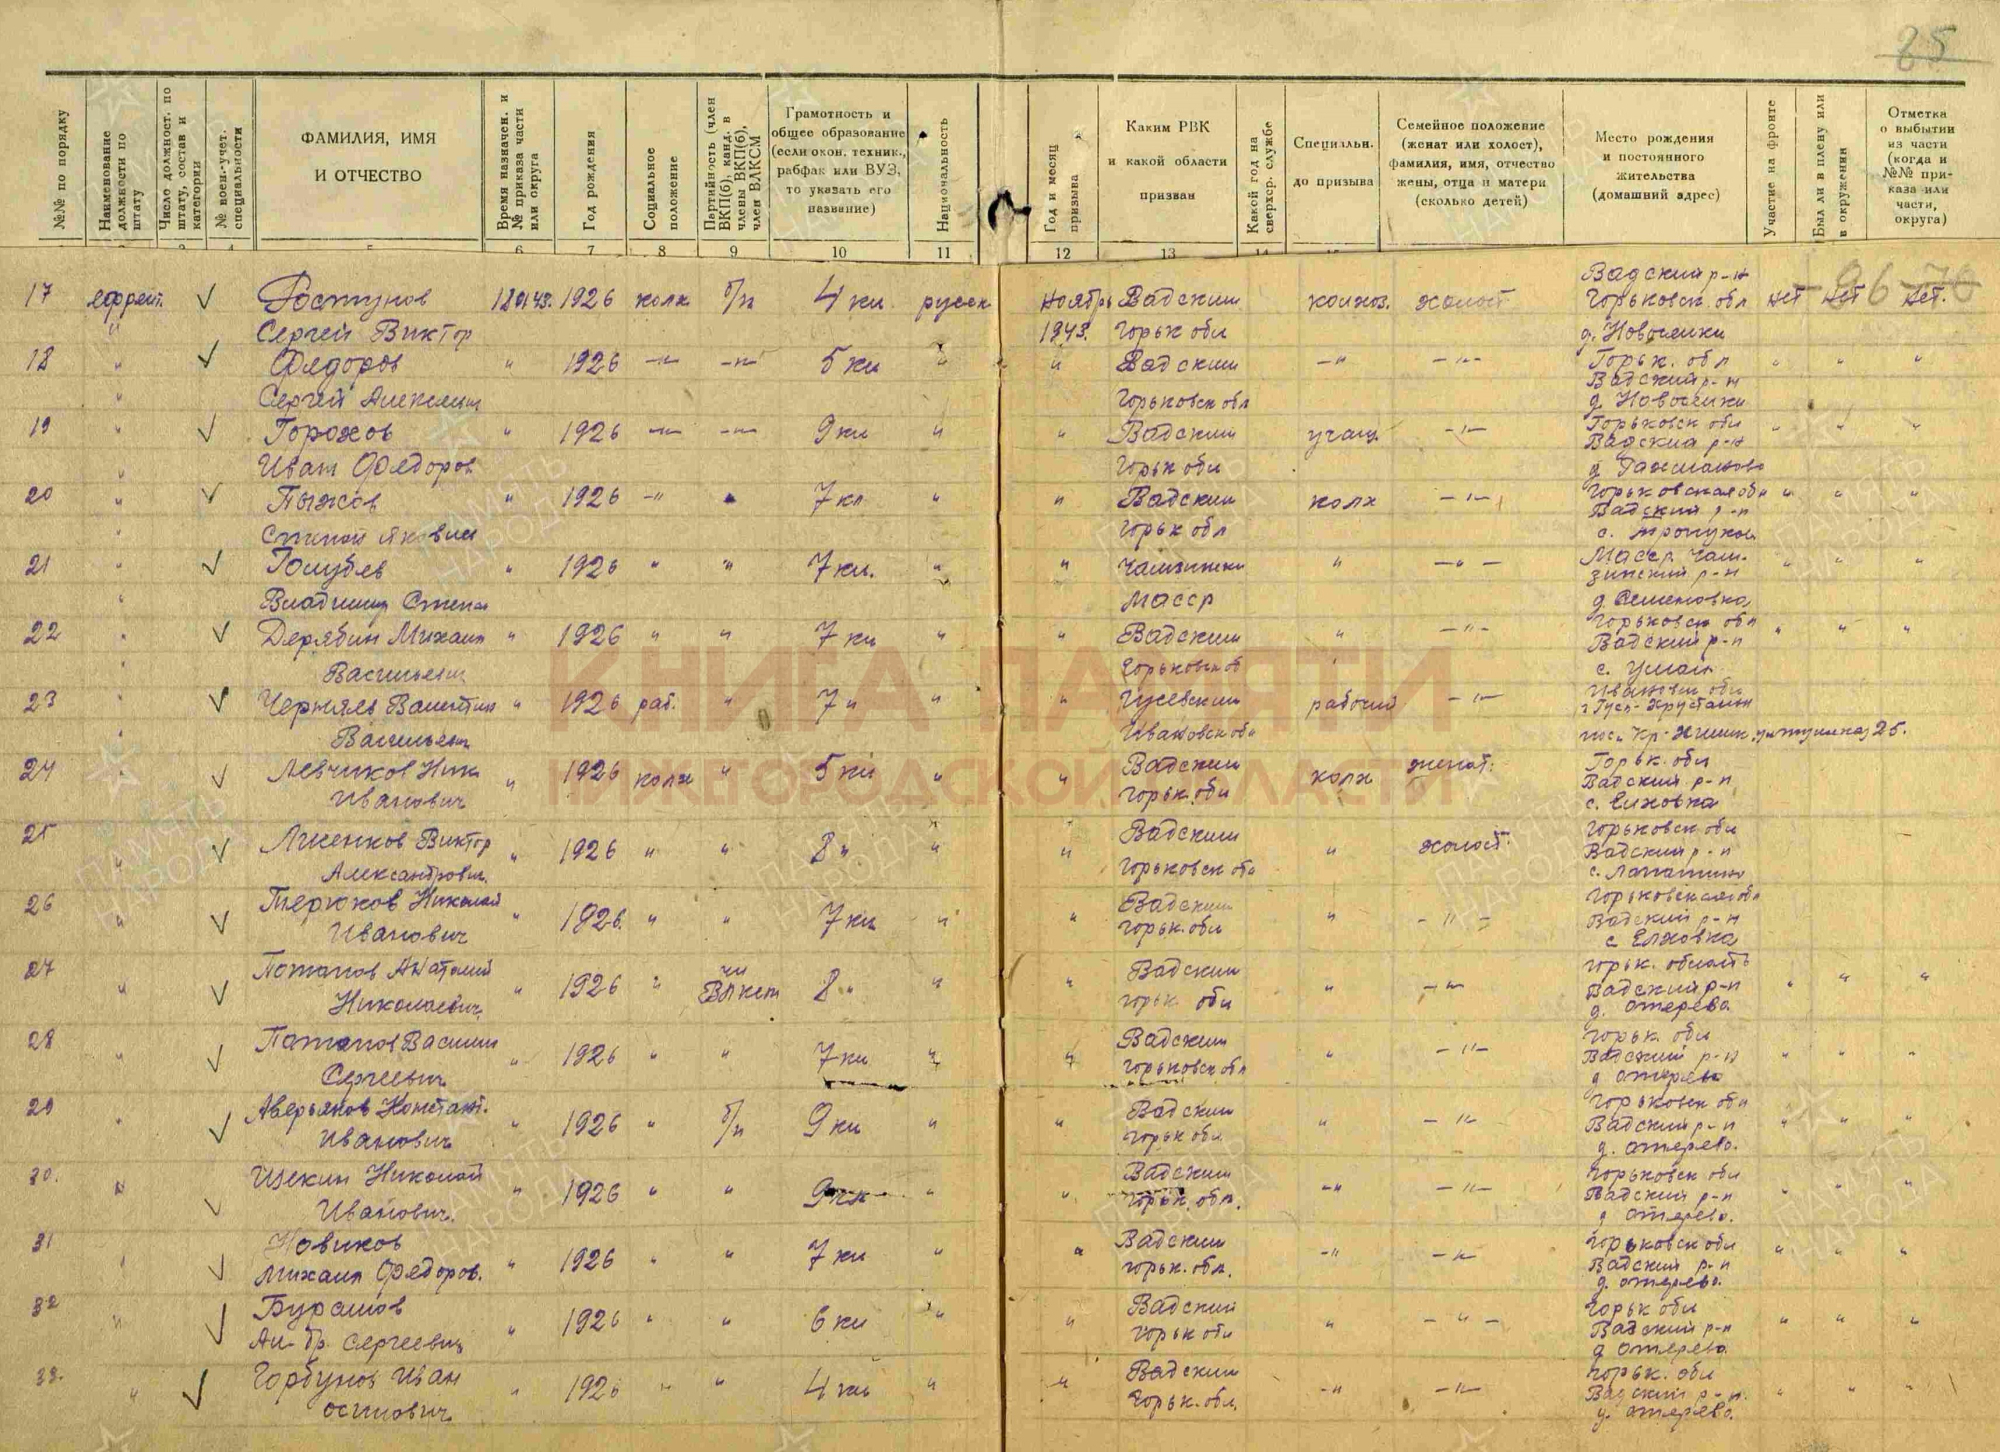 25
№№ по порядку
Наименование должности по штату
Число должност. по штату, состав и категории
№ воен.-учет. специальности
ФАМИЛИЯ, ИМЯ
И ОТЧЕСТВО
Время назначен. и № приказа части или округа
Год рождения
Социальное положение
Партийность (член ВКП(б), канд. в члены ВКП(б), член ВЛКСМ
Грамотность и
общее образование
(если окон. техник.,
рабфак или ВУЗ,
то указать его
название)
Национальность
Год и месяц призыва
Каким РВК
и какой области
призван
Какой год на сверхср. службе
Специальн.
до призыва
Семейное положение
(женат или холост),
фамилия, имя, отчество
жены, отца и матери
(сколько детей)
Место рождения
и постоянного
жительства
(домашний адрес)
Участие на фронте
Был ли в плену или в окружении
Отметка
о выбытии
из части
(когда и
№№ при-
каза или
части,
округа)
6 7 8 9 10 11 12 13
Вадский р-н
17 ефрейт. 1926 колх б/п 4 кл. русск ноябрь Вадским колхоз. холост Горьковск. обл нет нет нет.
Сергей Виктор 1943. Горьк обл д. Новоселки
18 " Федоров " 1926 -"- -"- 5 кл " " Вадским -"- -"- Горьк. обл " " "
Вадский р-н
" Сергей Алексеев Горьковск обл д. Новоселки
19 " Горохов " 1926 -"- -"- 9 кл " " Вадским учащ. -"- Горьковск обл " " "
Вадский р-н
" Иван Федоров Горьк обл
20 " Пыжов " 1926 -"- 7 кл " " Вадским колх -"- Горьковская обл " " "
Вадский р-н
" Горьк обл
21 " Голубев " 1926 " " 7 кл. " " Чамзински " -"- Масср. Чам- " " "
зинский р-н
" Владимир Степан Масср д. Семеновка
22 " Дерябин Михаил " 1926 " " 7 кл " " Вадским " -"- Горьковск обл " " "
Вадский р-н
" Васильевич Горьковск об
23 " " 1926 раб. " 7 " " " Гусевским рабочий -"- Ивановск обл
г Гусь-Хрустальн
" Васильевич Ивановск обл
24 Левчиков Ник " 1926 колх " 5 кл " " Вадским колх женат. Горьк. обл
Вадский р-н
Иванович Горьк. обл с. Елховка
25 " Виктор " 1926 " " 8 " " " Вадским " холост. Горьковск обл
Вадский р-н
Александрович. Горьковск обл
26 " Терюков Николай " 1926. " " 7 кл " " Вадским " -"- Горьковская обл
Вадский р-н
Иванович Горьк. обл с. Елховка
27 " Потапов Анатолий " 1926 " 8 " " " Вадским " -"- Горьк. область " " "
Вадский р-н
Николаевич. Горьк обл д. Отерево.
28 " Потапов Василий " 1926 " " 7 кл " " Вадским " -"- Горьк. обл " " "
Вадский р-н
Сергеевич Горьковск обл д Отерево
29 " Аверьянов Констант. " 1926 " б/п 9 кл " " Вадским " -"- Горьковск обл " " "
Вадский р-н
Иванович Горьк обл д. Отерево.
30. " Щекин Николай " 1926 " " 9 кл " " Вадским -"- -"- Горьковск обл " " "
Вадский р-н
Иванович. Горьк. обл. д Отерево.
31 Новиков " 1926 " " 7 кл " " Вадским -"- -"- Горьковск обл " " "
Вадский р-н
Михаил Федоров. Горьк. обл. д. Отерево.
32 " " 1926 " " 6 кл " " Вадский " -"- Горьк обл " " "
Вадский р-н
Сергеевич Горьк обл д Отерево
33. " Горбунов Иван " 1926 " " 4 кл " " Вадским -"- -"- Горьк. обл " " "
Вадский р-н.
осипович Горьк. обл. д. Отерево.
КНИГА ПАМЯТИ
НИЖЕГОРОДСКОЙ ОБЛАСТИ
ПАМЯТЬ
НАРОДА